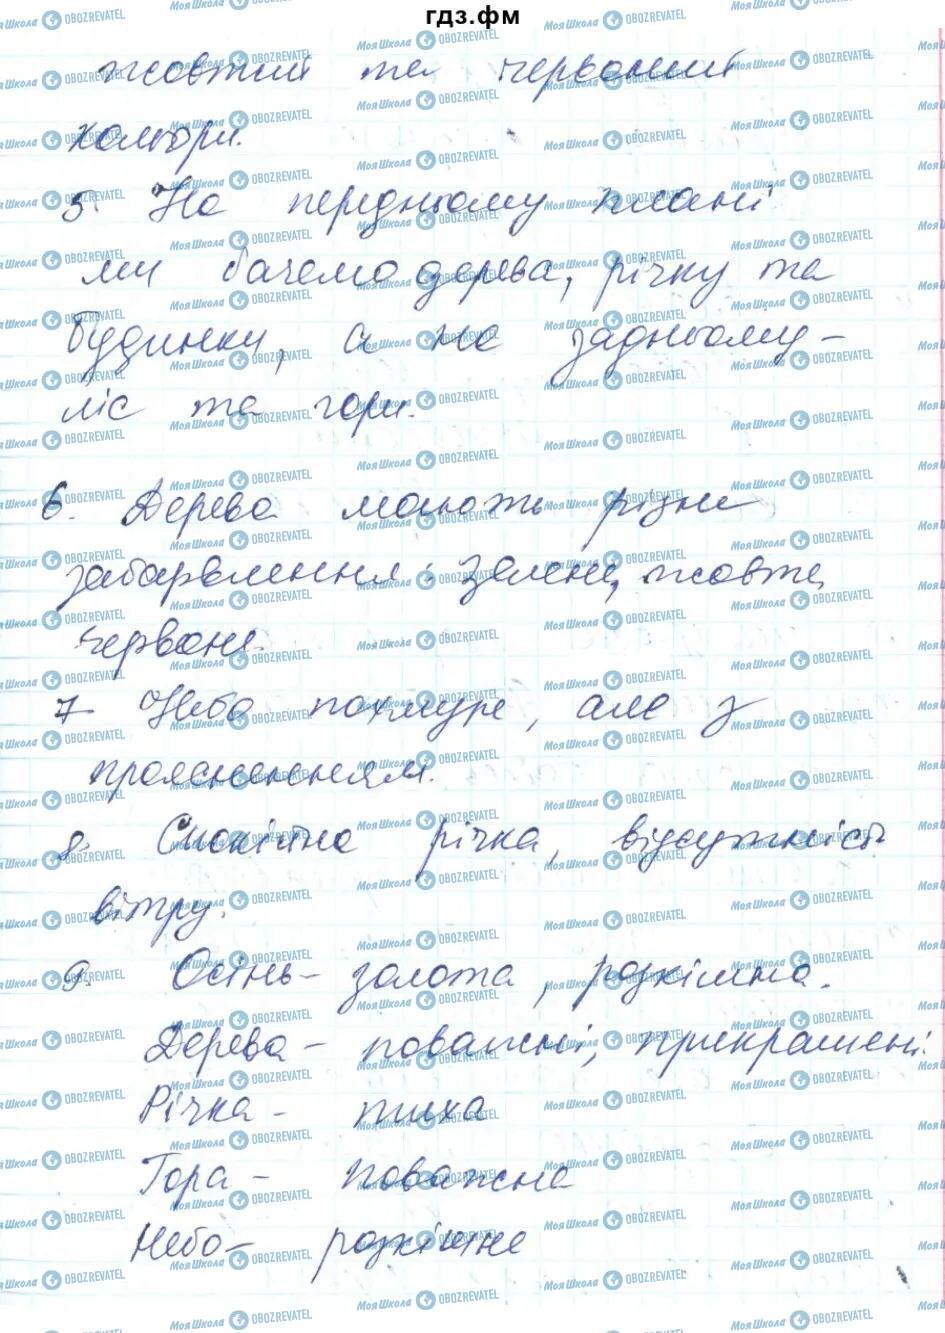 гдз.фм
жовтий та червоний
кольори.
5. На передньому плані
ми бачемо дерева, річку та
будинки, а на задньому –
ліс та гори.
6. Дерева мають різне
забарвлення: зелене, жовте,
червоне.
7 Небо похмуре, але з
проясненням.
8. Спокійна річка, відсутність
вітру.
9. Осінь – золота, розкішна.
Дерева – поважні, прикрашені.
Річка – тиха
Гора – поважна
Небо – розкішне